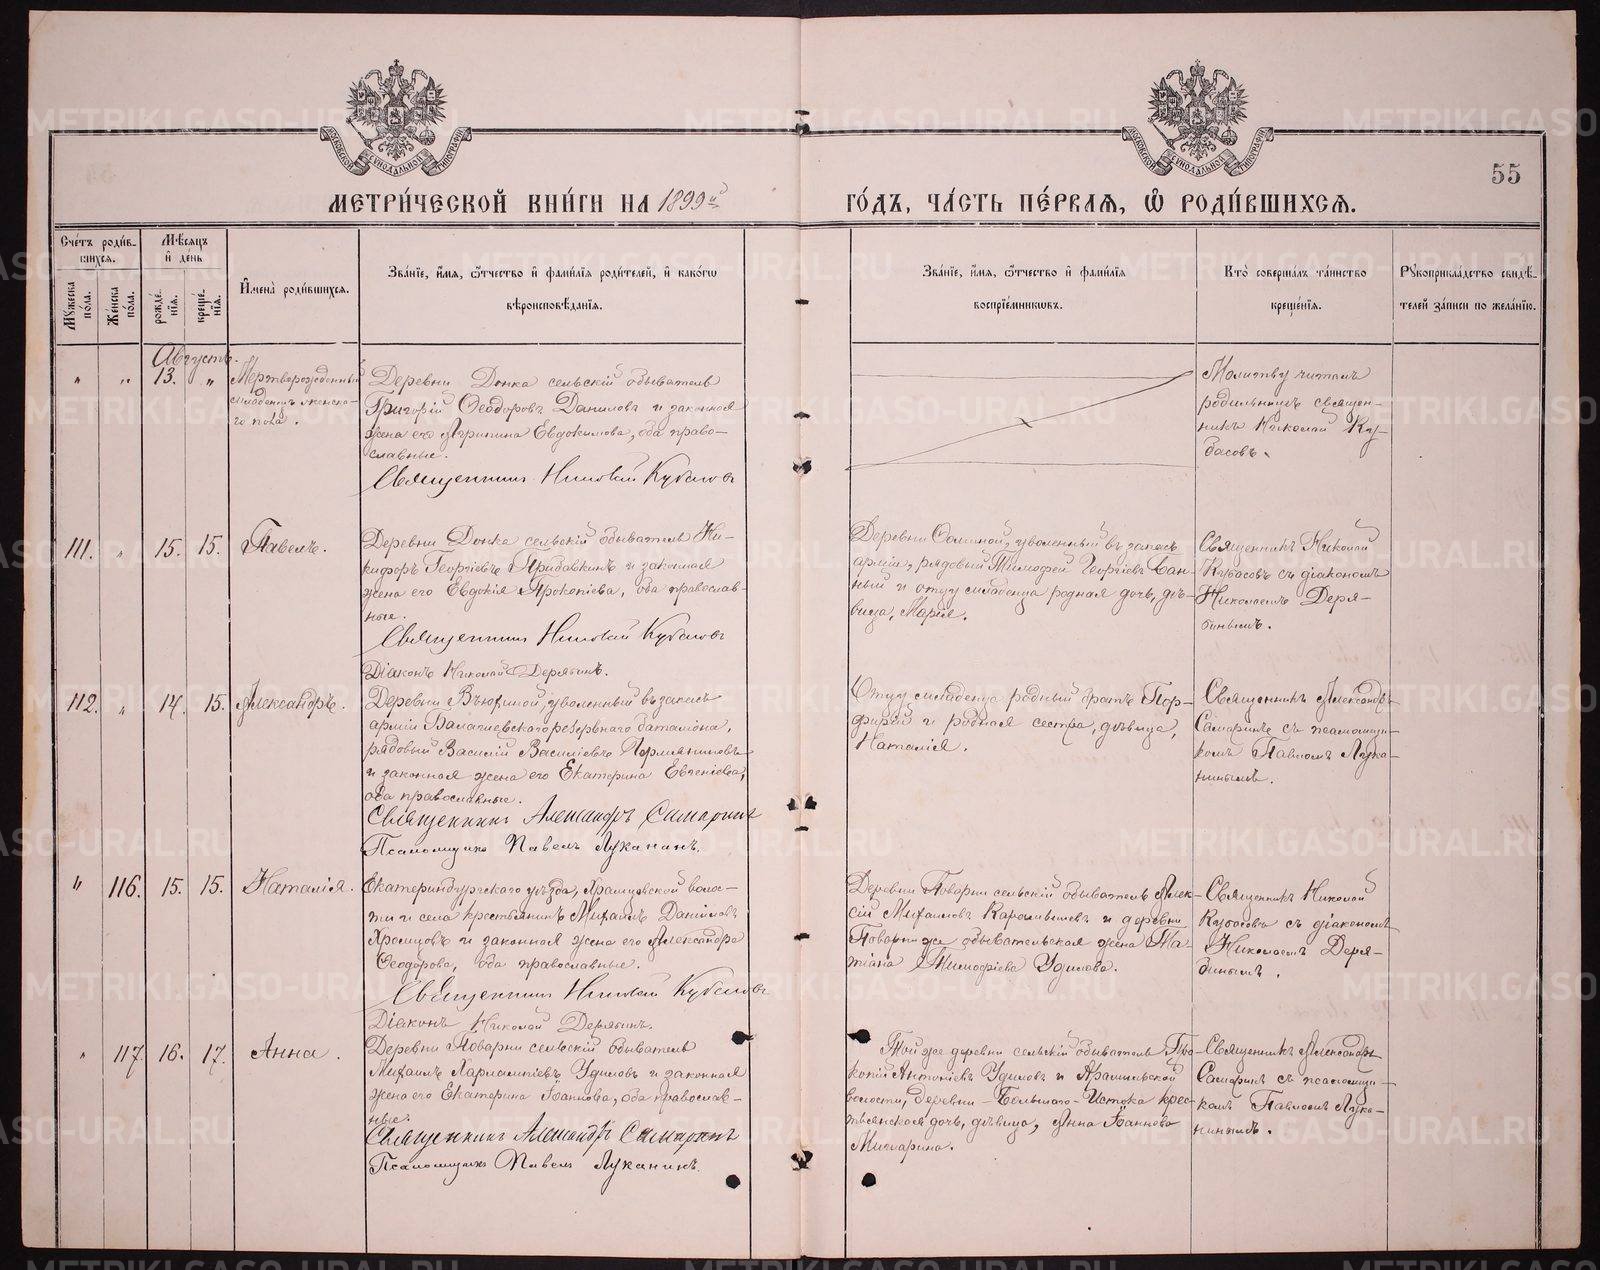 МОСКОВСКОЙ СѴНОДАЛЬНОЙ ТИПОГРАФІИ
МОСКОВСКОЙ СѴНОДАЛЬНОЙ ТИПОГРАФІИ
55
МЕТРИ́ЧЕСКОЙ КНИ́ГИ НА 1899й
ГО́ДЪ, ЧА́СТЬ ПЕ́РВАѦ, Ѡ РОДИ́ВШИХСѦ.
Сче́тъ роди́в-
шихсѧ.
Мѣ́сѧцъ
и҆ де́нь
Мꙋ́жеска по́ла.
Же́нска по́ла.
рожде́нїѧ.
креще́нїѧ.
И҆мена̀ роди́вшихсѧ.
Зва́нїе, и҆́мѧ, ѻ҆́тчество и҆ фами́лїѧ роди́телей, и҆ како́гѡ
вѣроисповѣ́данїѧ.
Зва́нїе, и҆́мѧ, ѻ҆́тчество и҆ фами́лїѧ
воспрїе́мникѡвъ.
Кто̀ соверша́лъ та́инство
креще́нїѧ.
Рꙋкоприкла́дство свидѣ́-
телей за́писи по жела́нїю.
Августъ.
" " 13. "
Мертворожденный
младенецъ женска-
го пола.
Деревни Донка сельскій обыватель
Григорій Ѳеодоровъ Даниловъ и законная
жена его Агрипина Евдокимова, оба право-
славные.
Священникъ Николай Кубасовъ
Молитву читалъ
родильницѣ священ-
никъ Николай Ку-
басовъ.
111. " 15. 15. Павелъ.
Деревни Донка сельскій обыватель Ни-
кифоръ Георгіевъ Прибавкинъ и законная
жена его Евдокія Прокопіева, оба православ-
ные.
Священникъ Николай Кубасовъ
Діаконъ Николай Дерябинъ.
Деревни уволенный въ запасъ
арміи, рядовый Тимофей Георгіевъ
и отцу младенца родная дочь, дѣ-
вица, Марія.
Священникъ Николай
Кубасовъ съ діакономъ
Николаемъ Деря-
бинымъ.
112. " 14. 15. Александръ.
Деревни уволенный въ запасъ
арміи резервнаго баталіона,
рядовый Василій Василіевъ
и законная жена его Екатерина Евгеніева,
оба православные.
Священникъ Александръ Самаринъ
Псаломщикъ Павелъ Луканинъ.
Отцу младенца родный братъ Пор-
фирій и родная сестра, дѣвица,
Наталія.
Священникъ Александръ
Самаринъ съ псаломщи-
комъ Павломъ Лука-
нинымъ.
" 116. 15. 15. Наталія.
Екатеринбургскаго уѣзда, Храмцовской волос-
ти и села крестьянинъ Михаилъ Даніиловъ
Храмцовъ и законная жена его Александра
Ѳеодорова, оба православные.
Священникъ Николай Кубасовъ
Діаконъ Николай Дерябинъ.
Деревни Поварни сельскій обыватель Алек-
сій Михаиловъ Карамышевъ и деревни
Поварни же обывательская жена Та-
тіана Тимофіева Удилова.
Священникъ Николай
Кубасовъ съ діакономъ
Николаемъ Деря-
бинымъ.
" 117. 16. 17. Анна.
Деревни Поварни сельскій обыватель
Михаилъ Харлампіевъ Удиловъ и законная
жена его Екатерина Іоаннова, оба православ-
ные.
Священникъ Александръ Самаринъ
Псаломщикъ Павелъ Луканинъ.
Той же деревни сельскій обыватель Про-
копій Антоніевъ Удиловъ и Арамильской
волости, деревни Большаго-Истока крес-
тьянская дочь, дѣвица, Анна Іоаннова
Мичарина.
Священникъ Александръ
Самаринъ съ псаломщи-
комъ Павломъ Лука-
нинымъ.